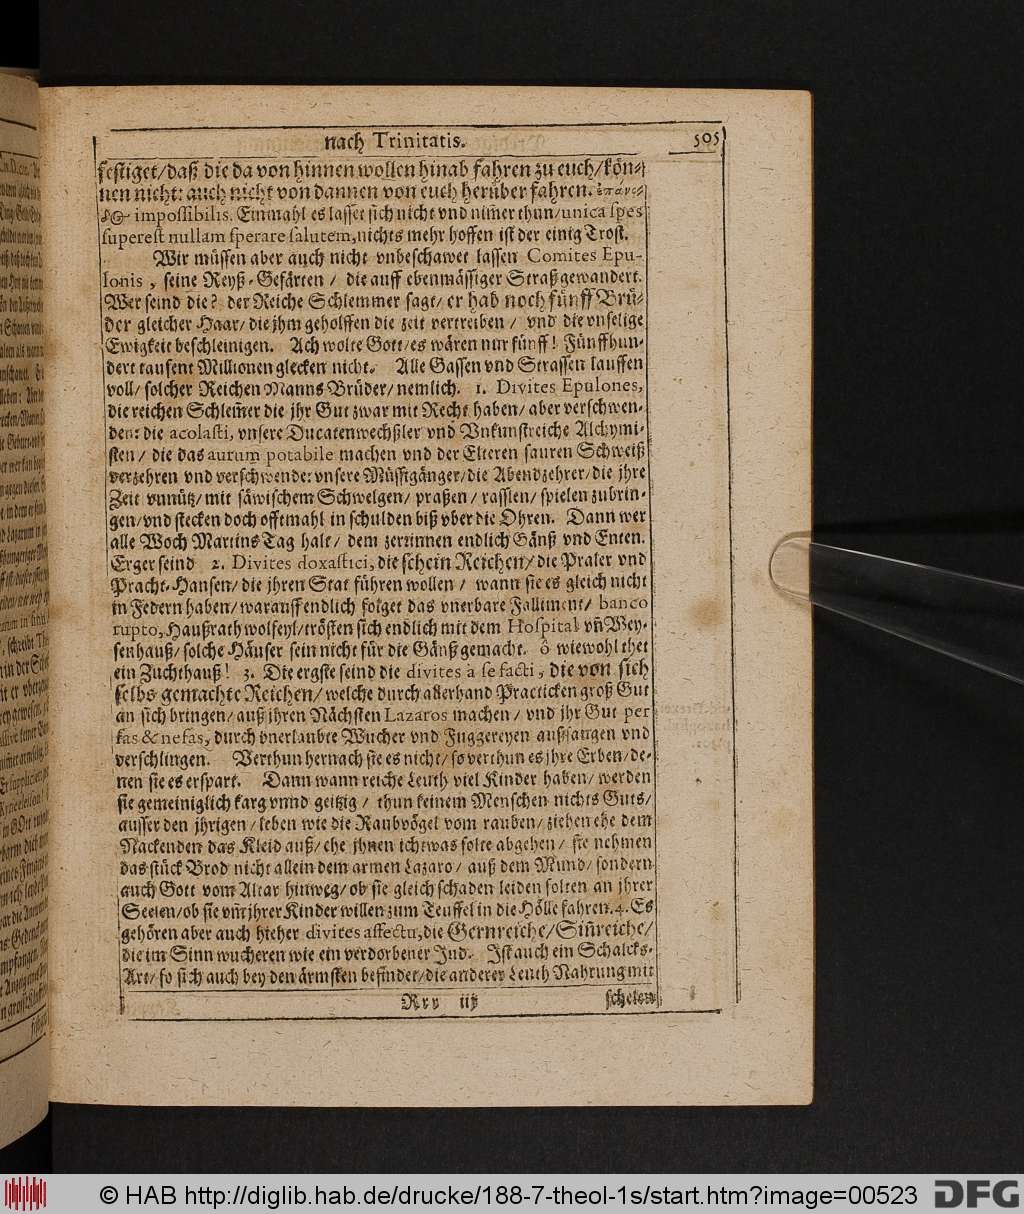 nach Trinitatis. 505
festiget/daß die da von hinnen wollen hinab fahren zu euch/kön-
nen nicht: auch nicht von dannen von euch herüber fahren.
impossibilis. Einmahl es lasset sich nicht vnd nim̃er thun/unica spes
superest nullam sperare salutem,nichts mehr hoffen ist der einig Trost.
Wir müssen aber auch nicht vnbeschawet lassen Comites Epu-
lonis, seine Reyß-Gefärten / die auff ebenmässiger Straß gewandert.
Wer seind die? der Reiche Schlemmer sagt/ er hab noch fünff Brü-
der gleicher Haar/ die jhm geholffen die zeit vertreiben / vnd die vnselige
Ewigkeit beschleinigen. Ach wolte Gott/ es wären nur fünff! Fünffhun-
dert tausent Millionen glecken nicht. Alle Gassen vnd Strassen lauffen
voll/ solcher Reichen Manns-Brüder/ nemlich. 1. Divites Epulones,
die reichen Schlem̃er die jhr Gut zwar mit Recht haben/ aber verschwen-
den: die acolasti, vnsere Ducatenwechßler vnd Vnkunstreiche Alchymi-
sten / die das aurum potabile machen vnd der Elteren sauren Schweiß
verzehren vnd verschwende: vnsere Müssiggänger/ die Abendzehrer/ die jhre
Zeit vnnütz/ mit säwischem Schwelgen/ praßen / rasslen/ spielen zubrin-
gen/ vnd stecken doch offtmahl in schulden biß vber die Ohren. Dann wer
alle Woch Martins Tag halt/ dem zerrinnen endlich Gänß vnd Enten.
Erger seind 2. Divites doxastici, die schein Reichen/ die Praler vnd
Pracht-Hansen/ die jhren Stat führen wollen / wann sie es gleich nicht
in Federn haben/ warauff endlich folget das vnerbare Falliment/ banco
rupto, Haußrath wolfeyl/ trösten sich endlich mit dem Hospital vñ Wey-
senhauß/ solche Häuser sein nicht für die Gänß gemacht. ô wie wohl thet
ein Zuchthauß! 3. Die ergste seind die divites à se facti, die von sich
selbs gemachte Reichen/ welche durch allerhand Practicken groß Gut
an sich bringen/ auß jhren Nächsten Lazaros machen / vnd jhr Gut per
fas & nefas, durch vnerlaubte Wucher vnd Fuggereyen außsaugen vnd
verschlingen. Verthun hernach sie es nicht/ so verthun es jhre Erben/ de-
nen sie es erspart. Dann wann reiche Leuth viel Kinder haben/ werden
sie gemeiniglich karg vnnd geitzig / thun keinem Menschen nichts Guts/
ausser den jhrigen/ leben wie die Raubvögel vom rauben/ ziehen ehe dem
Nackenden das Kleid auß/ ehe jhnen ichtwas solte abgehen/ sie nehmen
das stück Brod nicht allein dem armen Lazaro/ auß dem Mund/ sondern
auch Gott vom Altar hinweg/ ob sie gleich schaden leiden solten an jhrer
Seelen/ ob sie vm̃ jhrer Kinder willen zum Teuffel in die Hölle fahren. 4. Es
gehören aber auch hieher divites affectu, die Gernreiche/ Siñreiche/
die im Sinn wucheren wie ein verdorbener Jud. Ist auch ein Schalcks-
Art/ so sich auch bey den ärmsten befindet/ die anderer Leuth Nahrung mit
Rrr iij schelen
© HAB http://diglib.hab.de/drucke/188-7-theol-1s/start.htm?image=00523 DFG